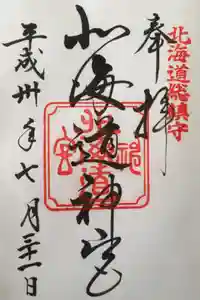 北海道総鎮守
奉拝
北海道神宮
平成卅年七月三十一日